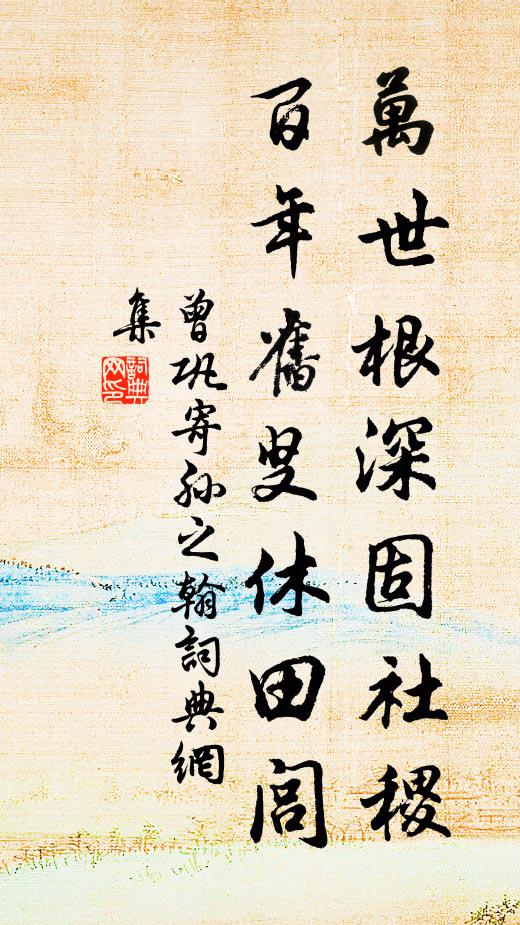 萬世根深固社稷
百年舊叟休田閭
曾鞏寄孫之翰詞典網
集
詞典網印